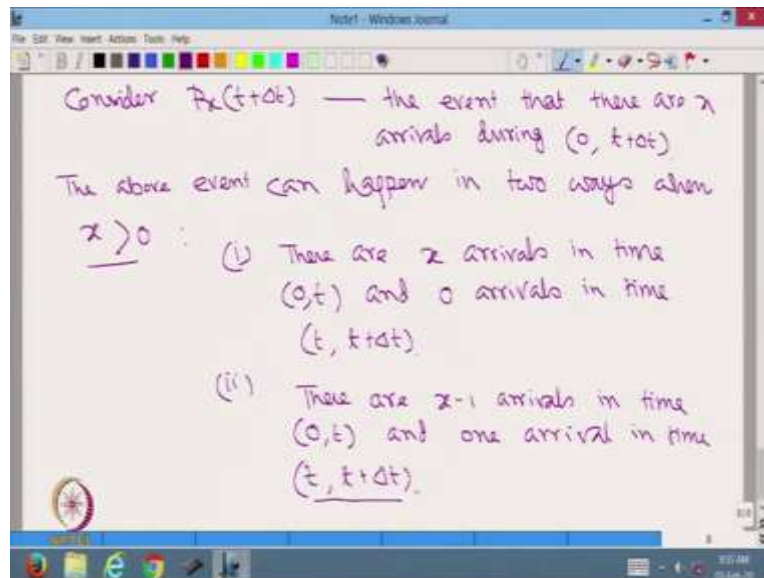 Note1 - Windows Journal
File Edit View Insert Actions Tools Help
Consider Px(t+Δt) — the event that there are x
arrivals during (0, t+Δt)
The above event can happen in two ways when
x > 0 :
(i) There are x arrivals in time
(0,t) and 0 arrivals in time
(t, t+Δt).
(ii) There are x-1 arrivals in time
(0,t) and one arrival in time
(t, t+Δt).
NPTEL